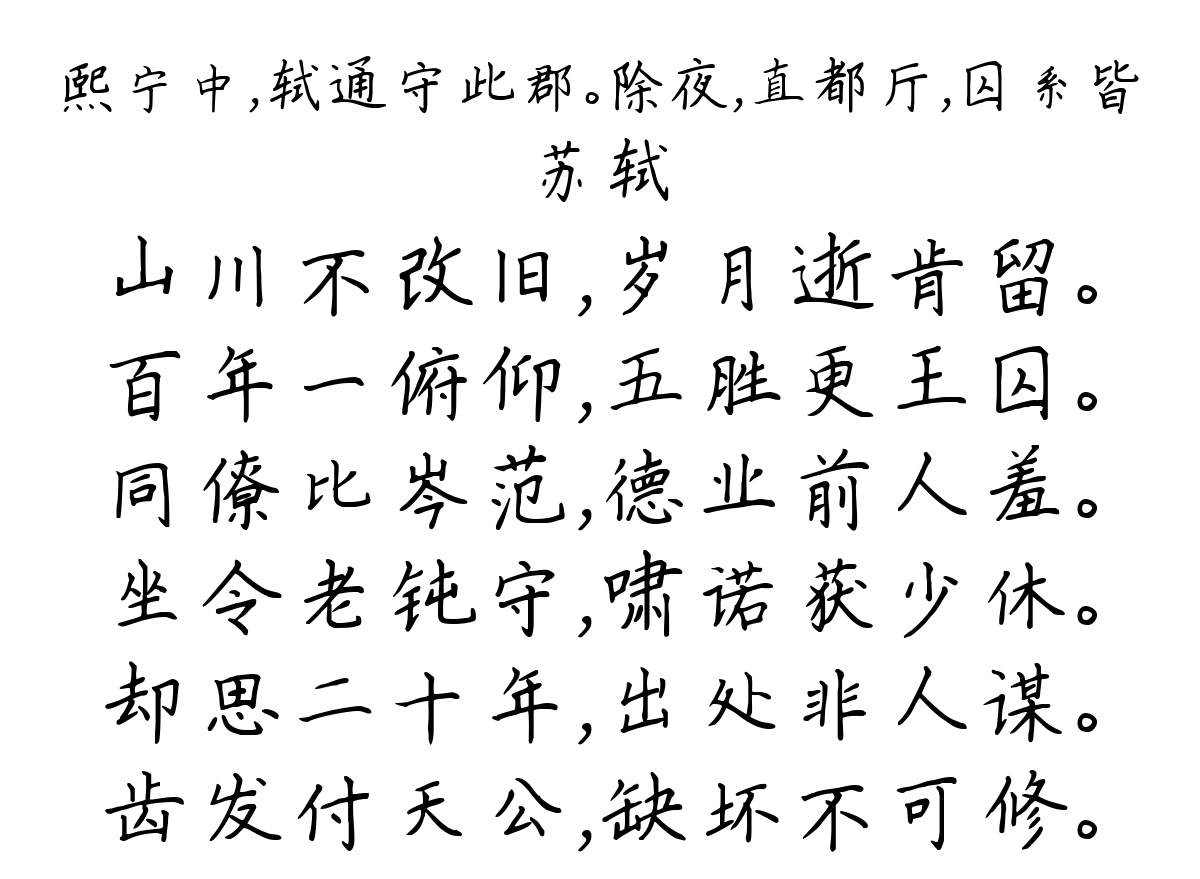 熙宁中,轼通守此郡。除夜,直都厅,囚系皆
苏轼
山川不改旧,岁月逝肯留。
百年一俯仰,五胜更王囚。
同僚比岑范,德业前人羞。
坐令老钝守,啸诺获少休。
却思二十年,出处非人谋。
齿发付天公,缺坏不可修。